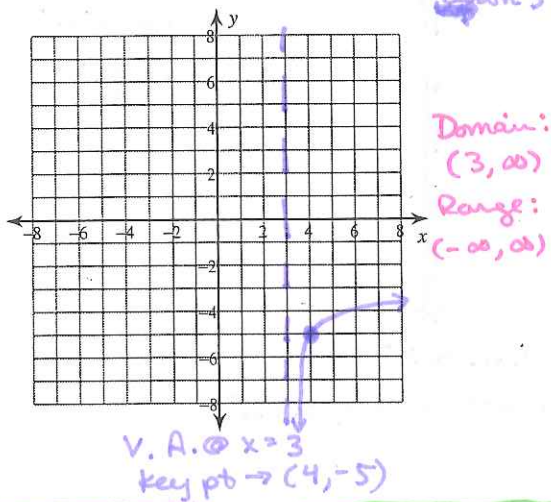 y
8
6
4
2
-8 -6 -4 -2 2 4 6 8 x
-2
-4
-6
-8
Domain:
(3, ∞)
Range:
(-∞, ∞)
V. A. @ x = 3
key pt → (4, -5)